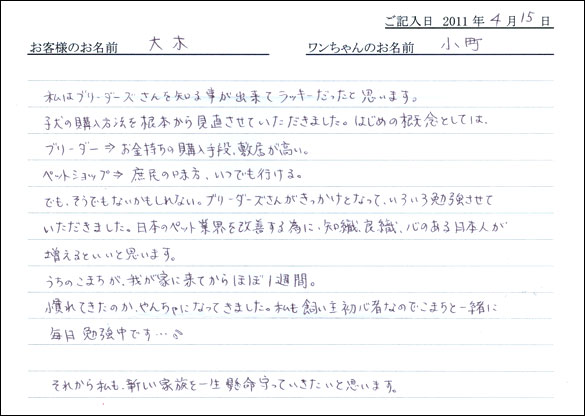 ご記入日 2011年4月15日
お客様のお名前 大木 ワンちゃんのお名前 小町
私はブリーダーズさんを知る事が出来てラッキーだったと思います。
子犬の購入方法を根本から見直させていただきました。はじめの概念としては、
ブリーダー⇒お金持ちの購入手段、敷居が高い。
ペットショップ⇒庶民の味方、いつでも行ける。
でも、そうでもないかもしれない。ブリーダーズさんがきっかけとなって、いろいろ勉強させて
いただきました。日本のペット業界を改善する為に、知識、良識、心のある日本人が
増えるといいと思います。
うちのこまちが、我が家に来てからほぼ1週間。
慣れてきたのか、やんちゃになってきました。私も飼い主初心者なのでこまちと一緒に
毎日勉強中です…
それから私も、新しい家族を一生懸命守っていきたいと思います。